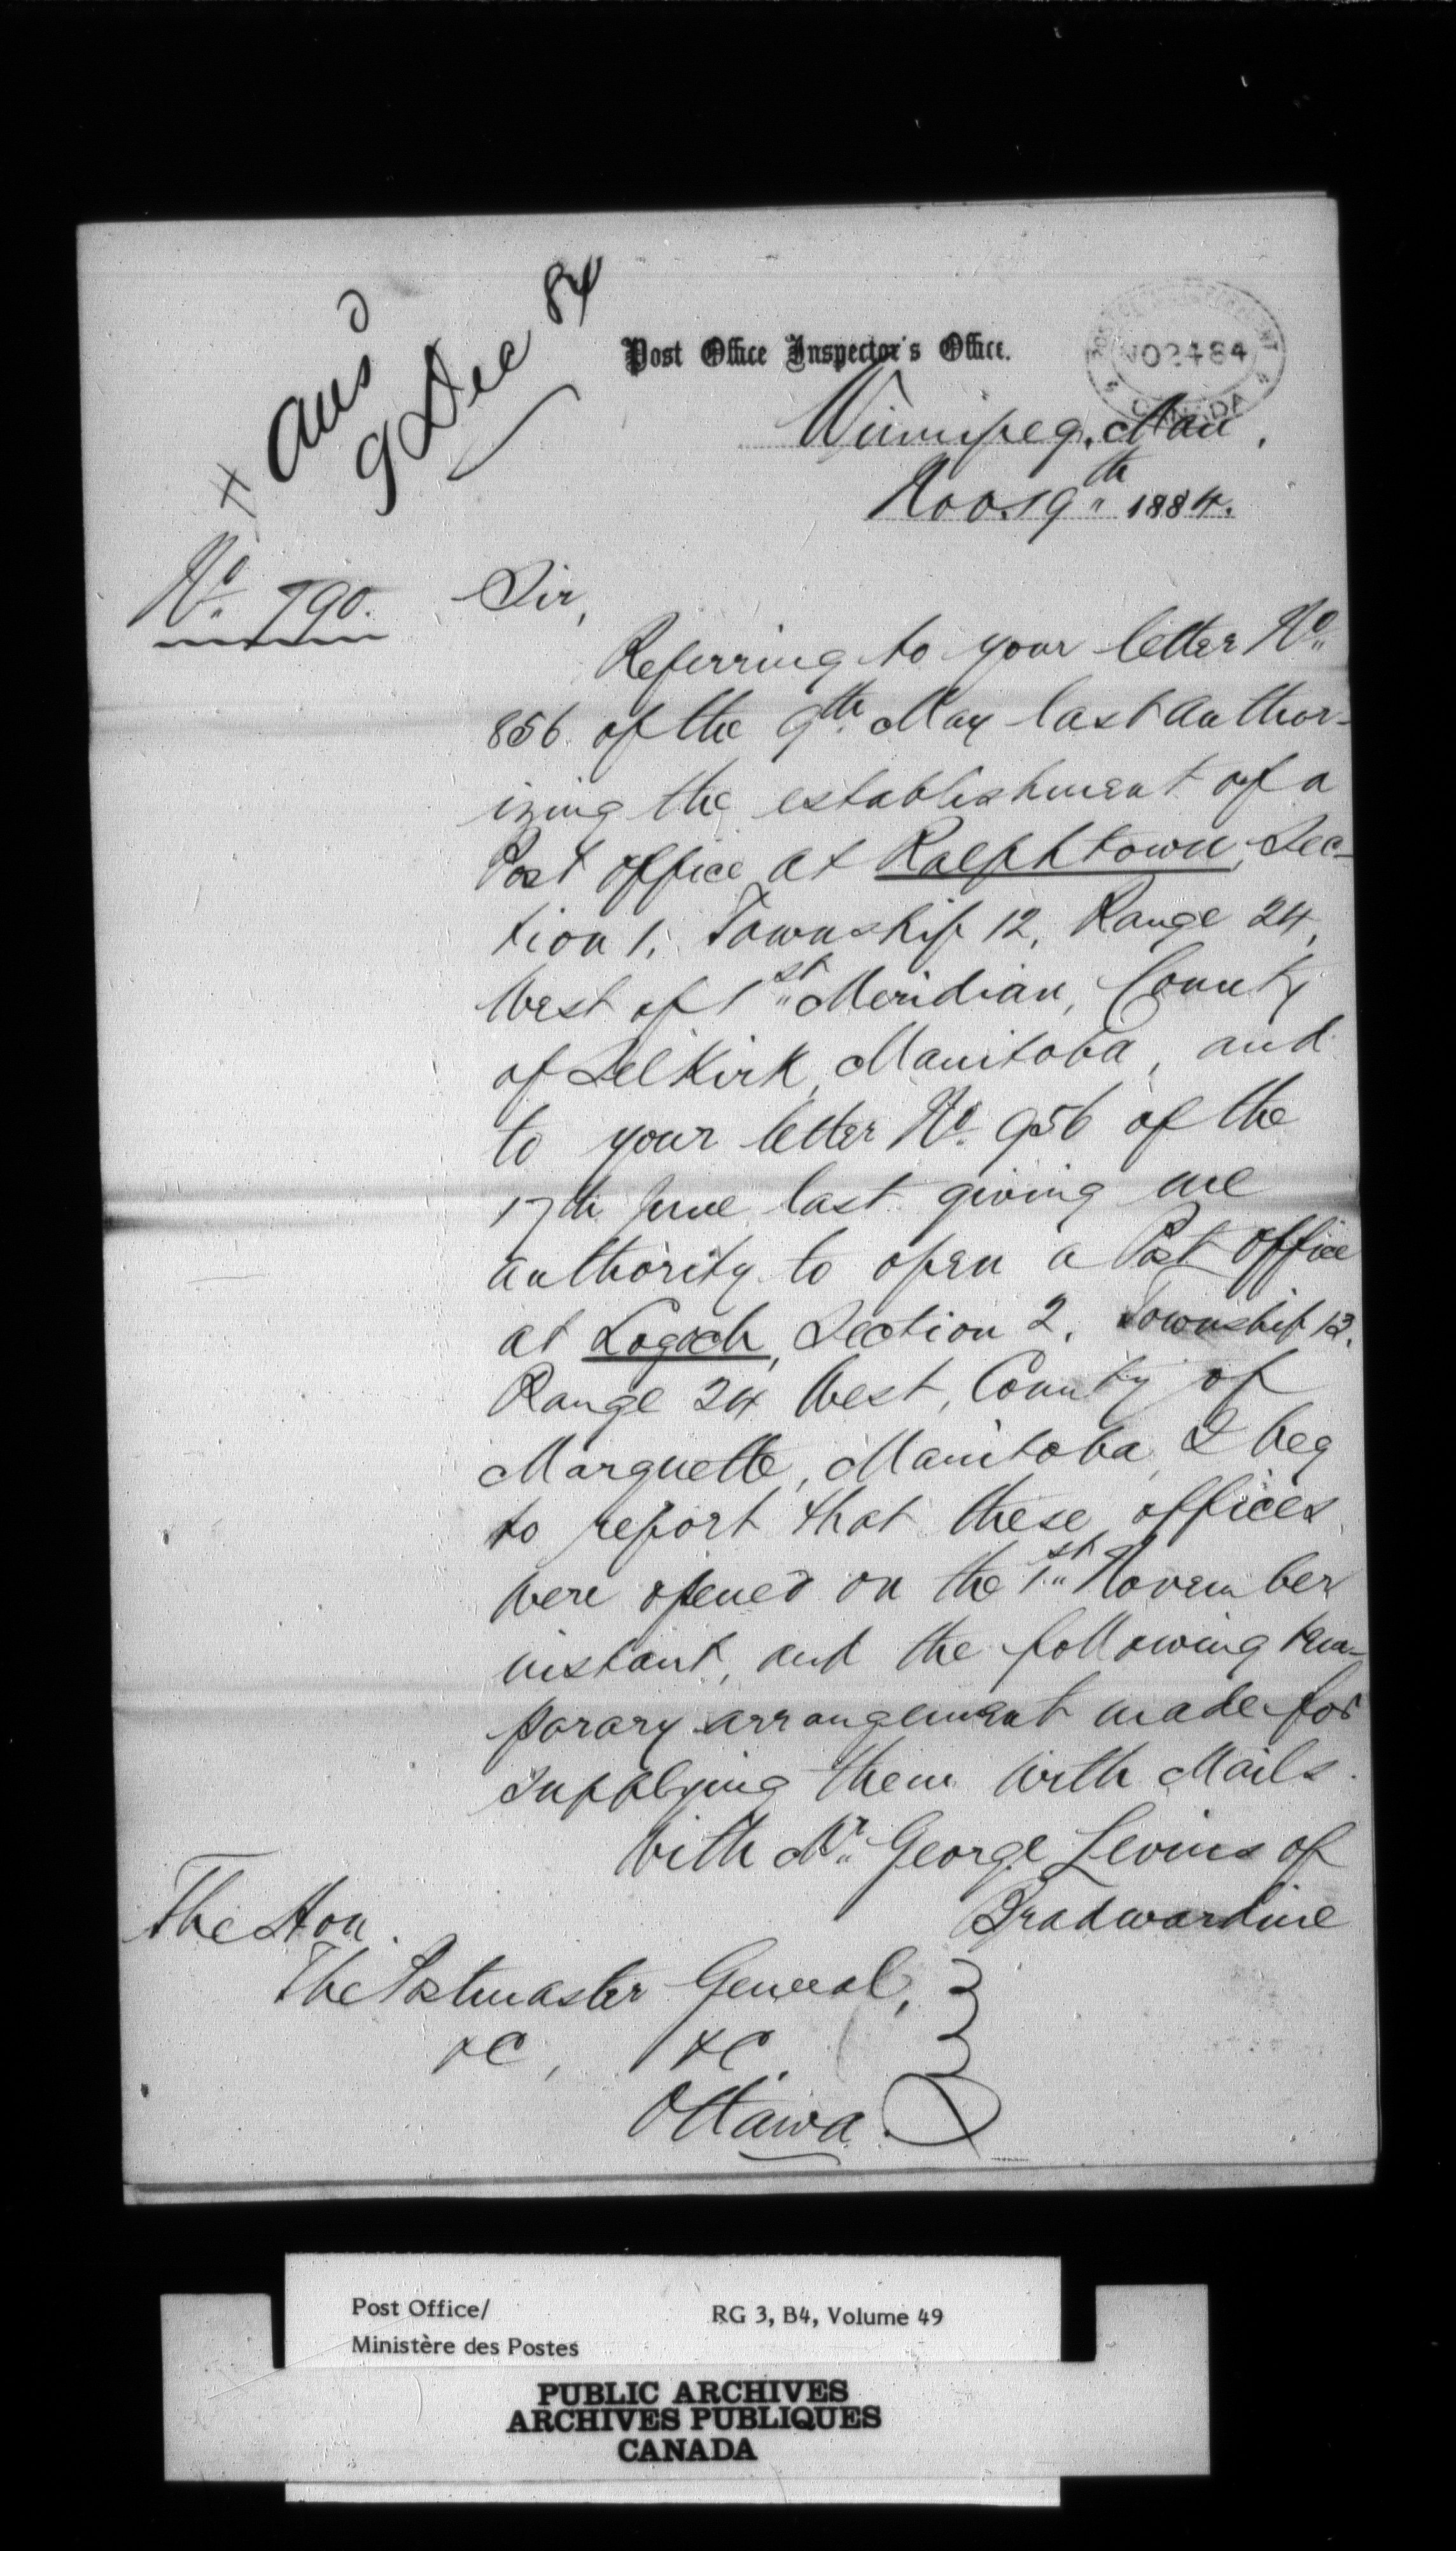 x Ans'd
9 Dec 84
Post Office Inspector's Office.
NO 24 84
CANADA
Winnipeg, Man.
Nov. 19th 1884.
No. 790.
Sir,
Referring to your letter No.
856 of the 9th May last author-
izing the establishment of a
Post Office at Ralphtown, Sec-
tion 1, Township 12, Range 24,
West of 1st Meridian, County
of Selkirk, Manitoba, and
to your letter No. 956 of the
17th June last giving me
authority to open a Post Office
at Logoch, Section 2, Township 13,
Range 24 West, County of
Marquette, Manitoba, I beg
to report that these offices
were opened on the 1st November
instant, and the following tem-
porary arrangement made for
supplying them with Mails.
With Mr. George Levins of
Bradwardine
The Hon.
The Postmaster General,
&c, &c.
Ottawa.
Post Office/
Ministère des Postes
RG 3, B4, Volume 49
PUBLIC ARCHIVES
ARCHIVES PUBLIQUES
CANADA